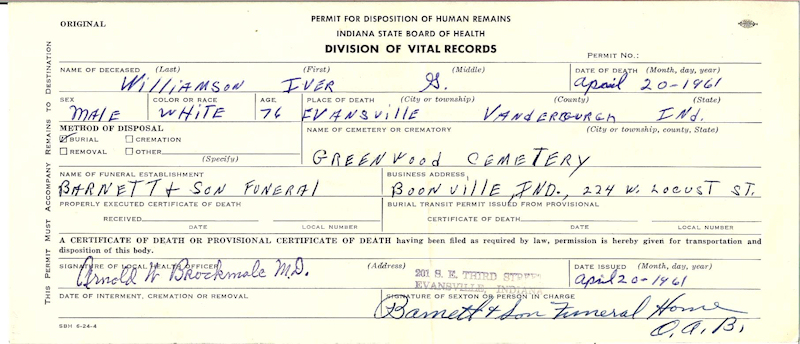 ORIGINAL
PERMIT FOR DISPOSITION OF HUMAN REMAINS
INDIANA STATE BOARD OF HEALTH
DIVISION OF VITAL RECORDS
PERMIT NO.:
THIS PERMIT MUST ACCOMPANY REMAINS TO DESTINATION
NAME OF DECEASED (Last) (First) (Middle) DATE OF DEATH (Month, day, year)
WILLIAMSON IVER G. April 20-1961
SEX COLOR OR RACE AGE PLACE OF DEATH (City or township) (County) (State)
MALE WHITE 76 EVANSVILLE VANDERBURGH IND.
METHOD OF DISPOSAL NAME OF CEMETERY OR CREMATORY (City or township, county, State)
BURIAL CREMATION
REMOVAL OTHER
(Specify)
GREENWOOD CEMETERY
NAME OF FUNERAL ESTABLISHMENT BUSINESS ADDRESS
BARNETT & SON FUNERAL BOONVILLE, IND., 224 W. LOCUST ST.
PROPERLY EXECUTED CERTIFICATE OF DEATH BURIAL TRANSIT PERMIT ISSUED FROM PROVISIONAL
RECEIVED CERTIFICATE OF DEATH
DATE LOCAL NUMBER DATE LOCAL NUMBER
A CERTIFICATE OF DEATH OR PROVISIONAL CERTIFICATE OF DEATH having been filed as required by law, permission is hereby given for transportation and
disposition of this body.
SIGNATURE OF LOCAL HEALTH OFFICER (Address) DATE ISSUED (Month, day, year)
Arnold W Brockmole M.D. 201 S. E. THIRD STREET April 20-1961
EVANSVILLE, INDIANA
DATE OF INTERMENT, CREMATION OR REMOVAL SIGNATURE OF SEXTON OR PERSON IN CHARGE
Barnett & Son Funeral Home
O.A.B.
SBH 6-24-4